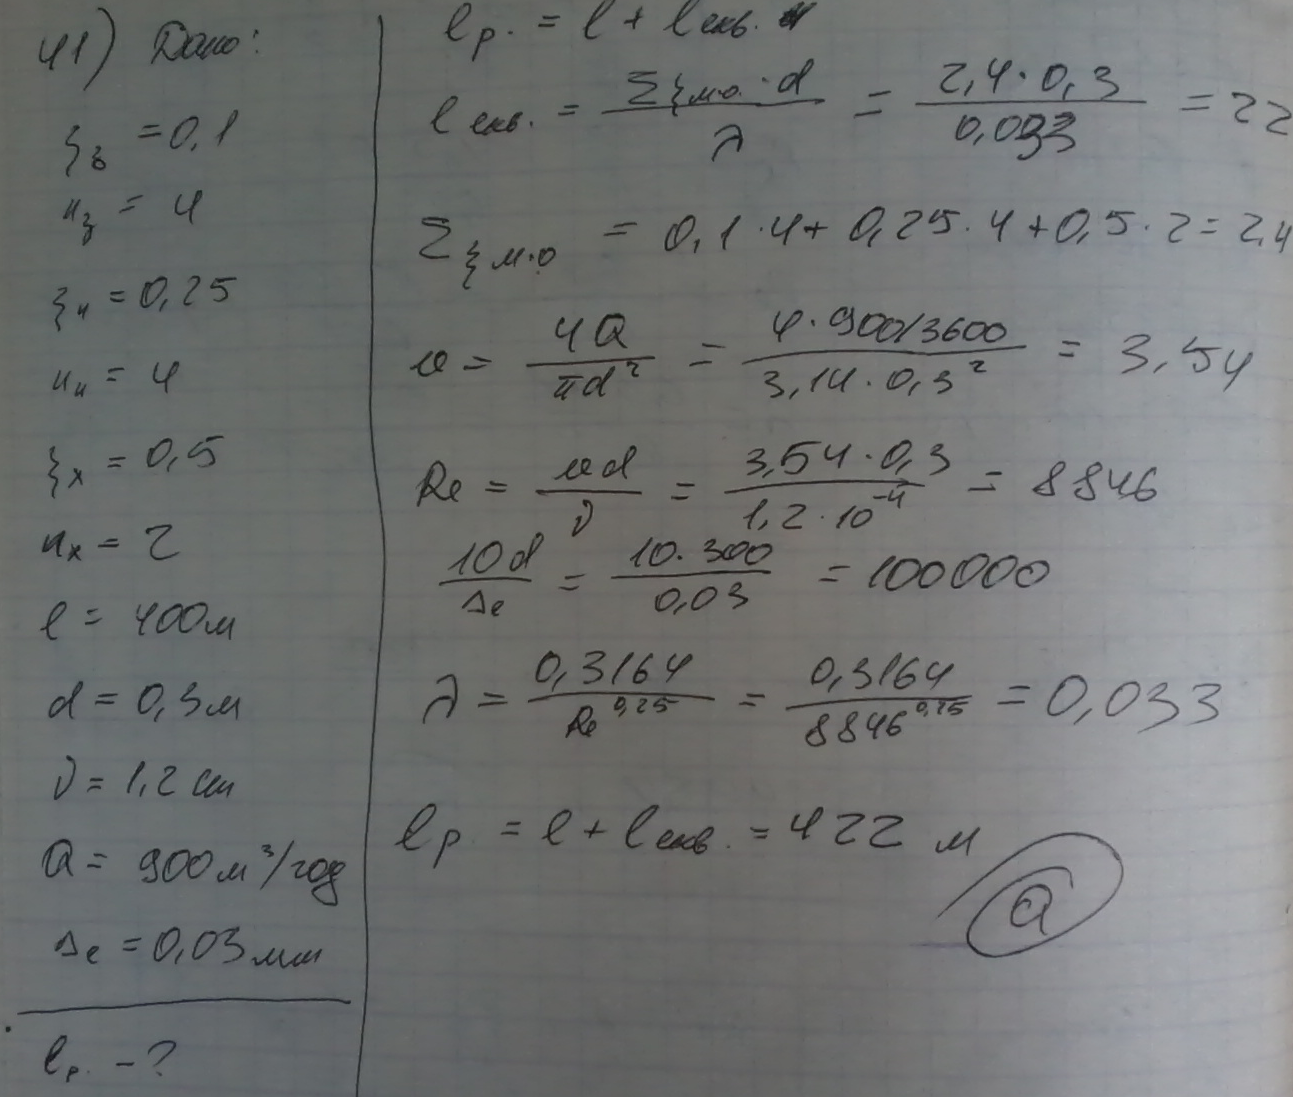 41) Дано:
ξз = 0,1
nз = 4
ξч = 0,25
nч = 4
ξх = 0,5
nх = 2
l = 400м
d = 0,3м
ν = 1,2 см
Q = 900м³/год
Δe = 0,03мм
lр. - ?
lр. = l + lекв.
lекв. = Σξм.о. · d / λ = 2,4 · 0,3 / 0,033 = 22
Σξм.о = 0,1 · 4 + 0,25 · 4 + 0,5 · 2 = 2,4
υ = 4Q / πd² = 4 · 900/3600 / 3,14 · 0,3² = 3,54
Re = υd / ν = 3,54 · 0,3 / 1,2 · 10⁻⁴ = 8846
10d / Δe = 10 · 300 / 0,03 = 100000
λ = 0,3164 / Re^0,25 = 0,3164 / 8846^0,25 = 0,033
lр = l + lекв. = 422 м
а